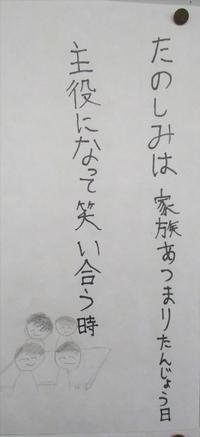 たのしみは家族あつまりたんじょう日
主役になって笑い合う時